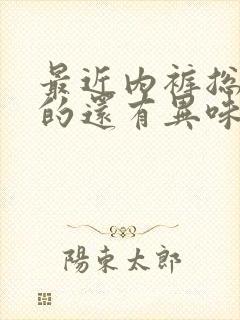 最近內褲總
的還有異味
陽東太郎